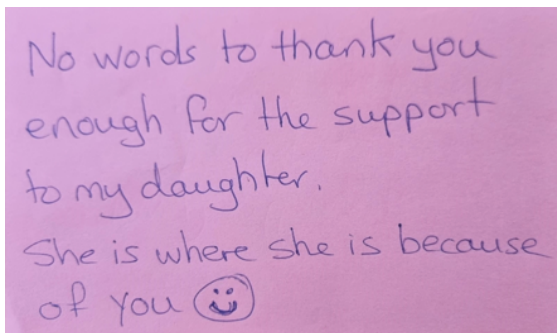 No words to thank you
enough for the support
to my daughter.
She is where she is because
of you ☺